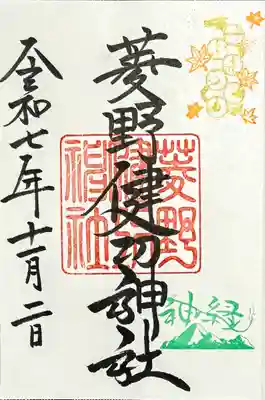 菱野健功神社
菱野
健功
神社
令和七年十一月二日